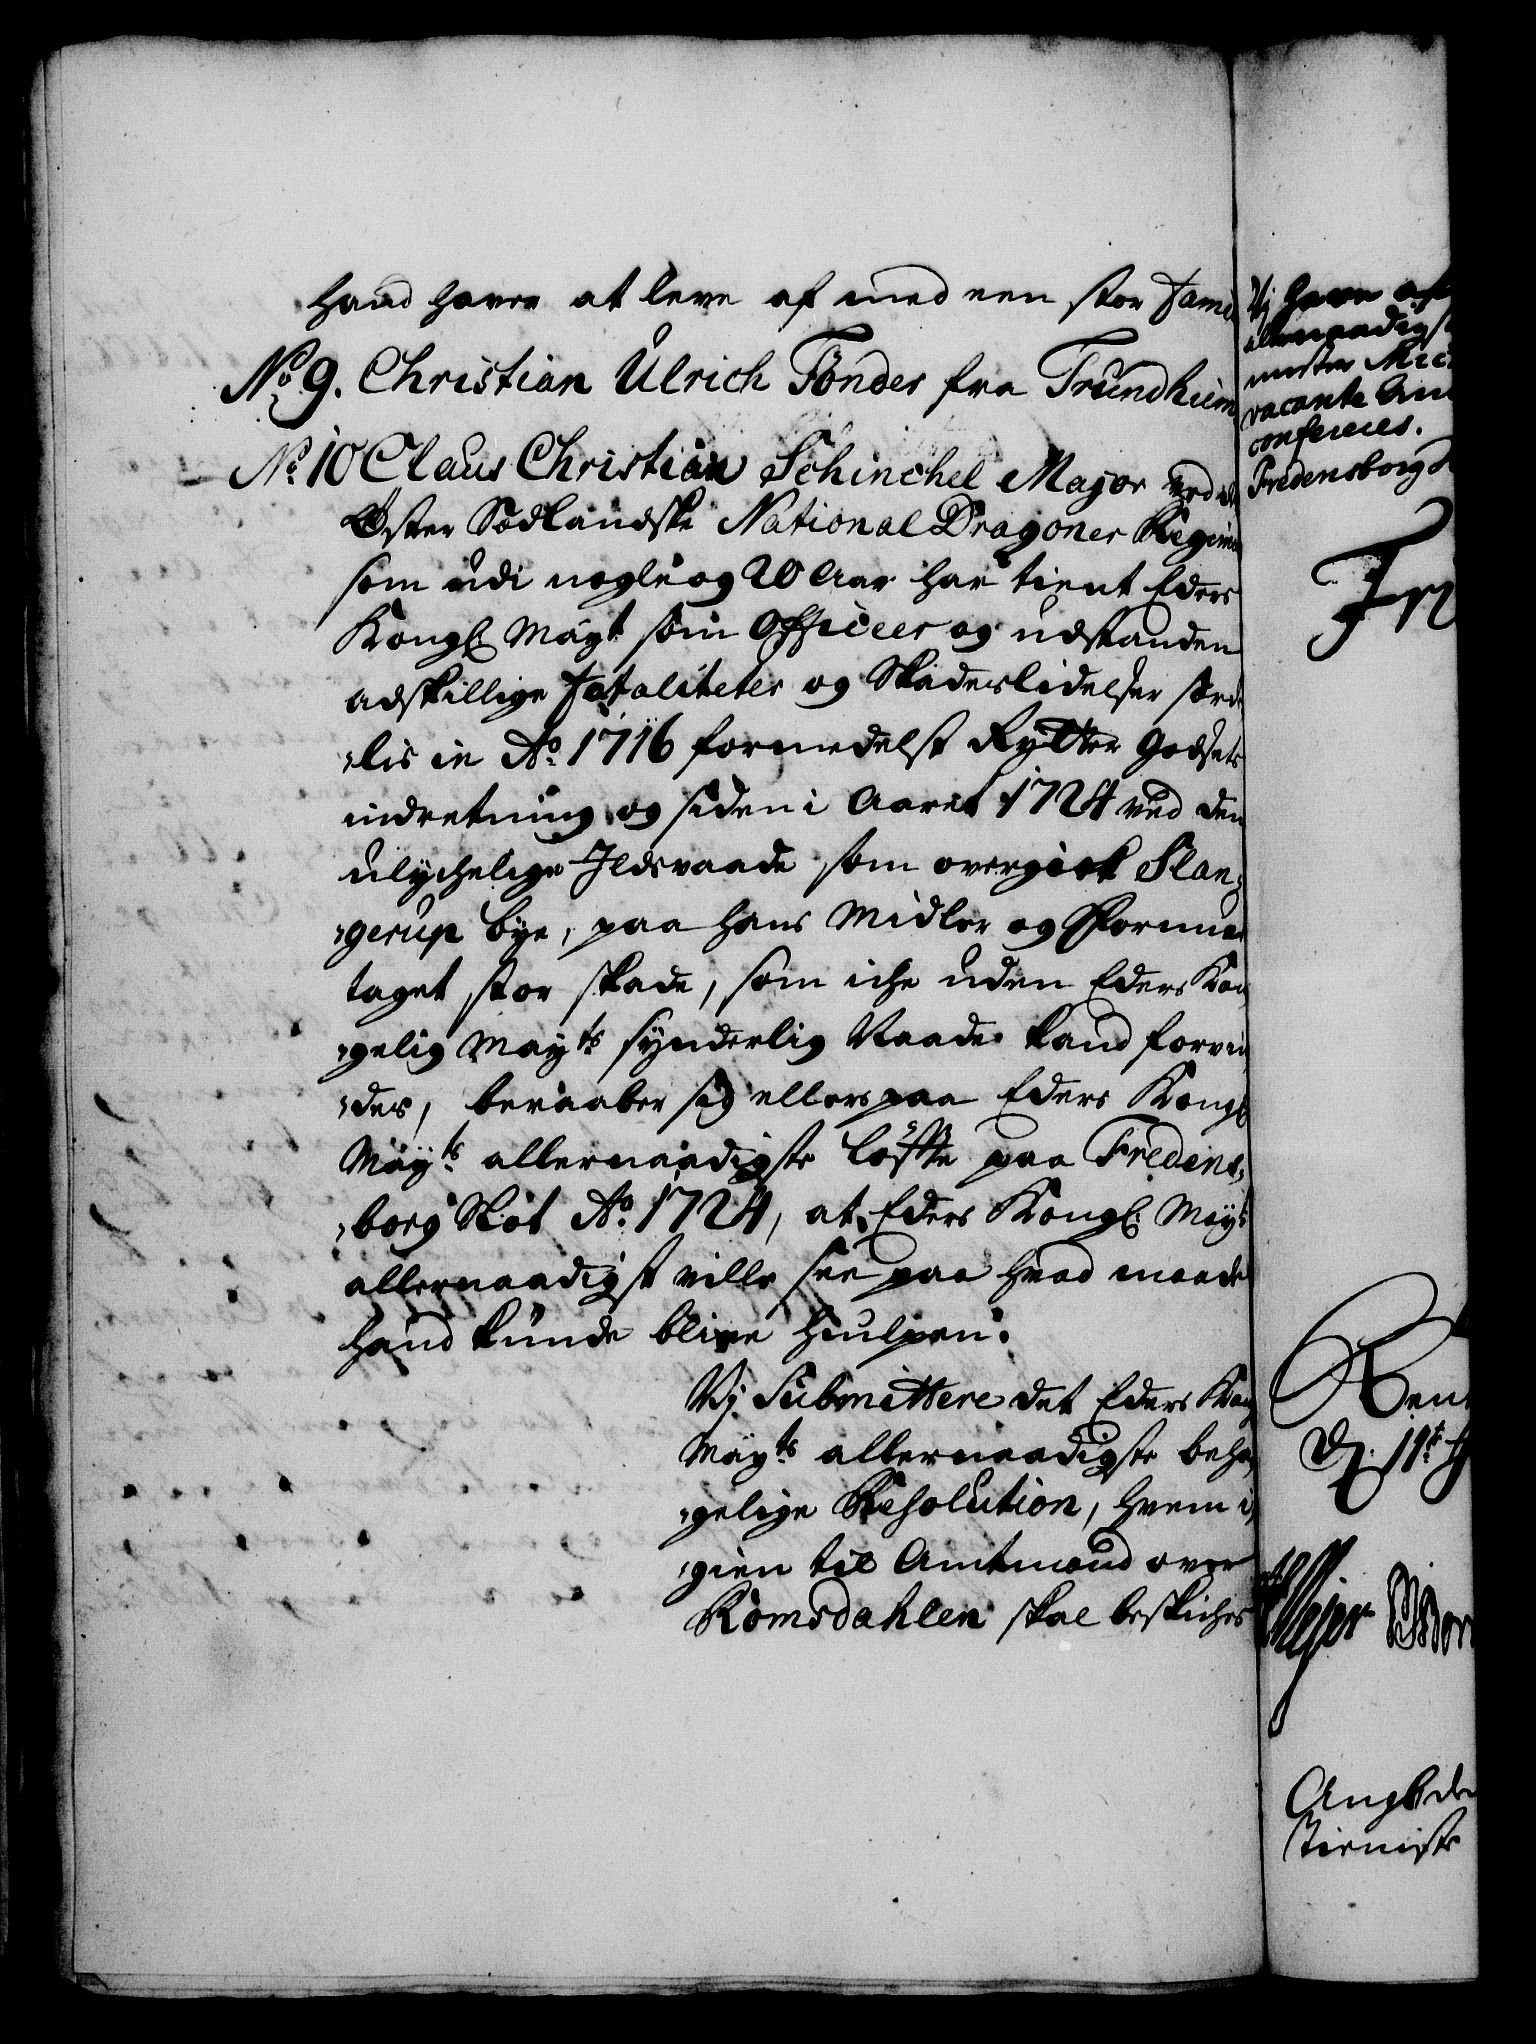 hand haver at leve af med een stor Fami
No 9. Christian Ulrich Tønder fra Trundhiem
No 10 Claus Christian Schinchel Major ved det
Øster Sødlandske National Dragoner Regim
som udi nogle og 20 Aar har tient Eders
Kongl: Mayt: som Officeer og udstanden
adskillige Fataliteter og Skaderlidelser sørde
-lis in Ao. 1716 formedelst Rytter Godsets
indretning og siden i Aaret 1724 ved den
ulychelige Ildsvaade som overgick Slan-
-gerup bye, paa hans Midler og Formue
taget stor skade, som iche uden Eders Kon
-gelig Mayts synderlig Naade kand forvin
-des, beraaber sig ellers paa Eders Kongl
Mayts: allernaadigste løffte paa Fredens-
-borg Slot Ao. 1724, at Eders Kongl: Mayt
allernaadigst ville see paa hvad maade
hand kunde blive hiulpen.
Vj Submittere det Eders Kong
Mayts allernaadigste beha
-gelige Resolution, hvem i,
-gien til Amtmand over
Romsdahlen skal beskiches
Vj have af
allernaadigst
vacante Am
conferers.
Fredensborg
Fri
Rent
D. 11t
Meyer
Angl: den